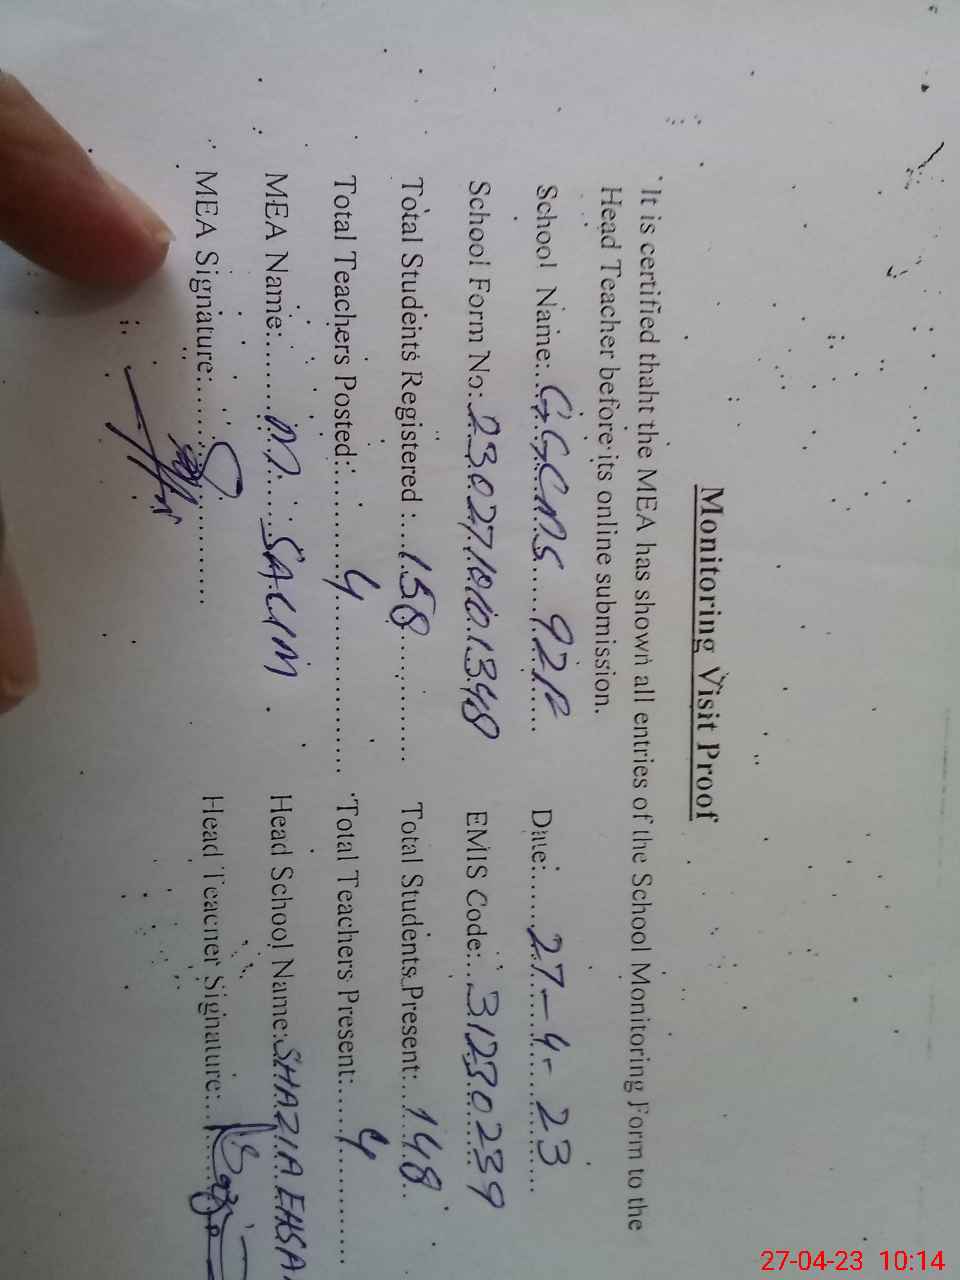 Monitoring Visit Proof
It is certified thaht the MEA has shown all entries of the School Monitoring Form to the
Head Teacher before its online submission.
School Name:..GGCMS 92P........ Date:......27-4-23....
School Form No:.2302710101348 EMIS Code:..31230239
Total Students Registered :...158............ Total Students Present:...148..
Total Teachers Posted:..........4.................. Total Teachers Present:.....4............
MEA Name:........M....SALIM Head School Name:SHAZIA EHSA
MEA Signature:.................... Head Teacher Signature:......
27-04-23 10:14